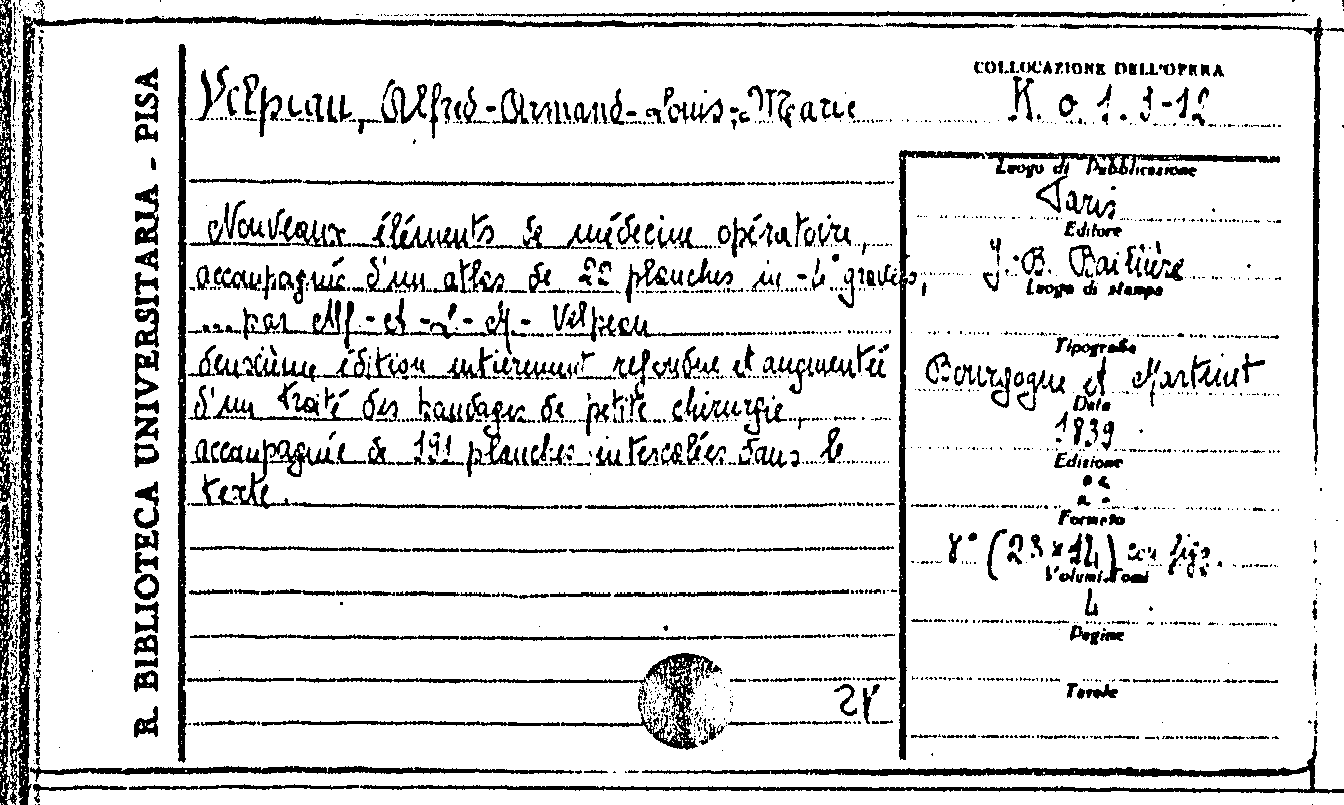 R. BIBLIOTECA UNIVERSITARIA - PISA
Velpeau, Alfred-Armand-Louis-Marie
COLLOCAZIONE DELL'OPERA
K. o. 1. 1-12
Nouveaux éléments de médecine opératoire,
accompagnée d'un atlas de 22 planches in-4° gravées,
... par Alf-A-L-M- Velpeau
deuxième édition entièrement refondue et augmentée
d'un traité des bandages de petite chirurgie,
accompagnée de 191 planches intercalées dans le
texte.
Luogo di Pubblicazione
Paris
Editore
J.-B. Baillière
Luogo di stampa
Tipografia
Bourgogne et Martinet
Data
1839
Edizione
Formato
8° (23x14) con figg.
Volumi-Tomi
4
Pagine
Tavole